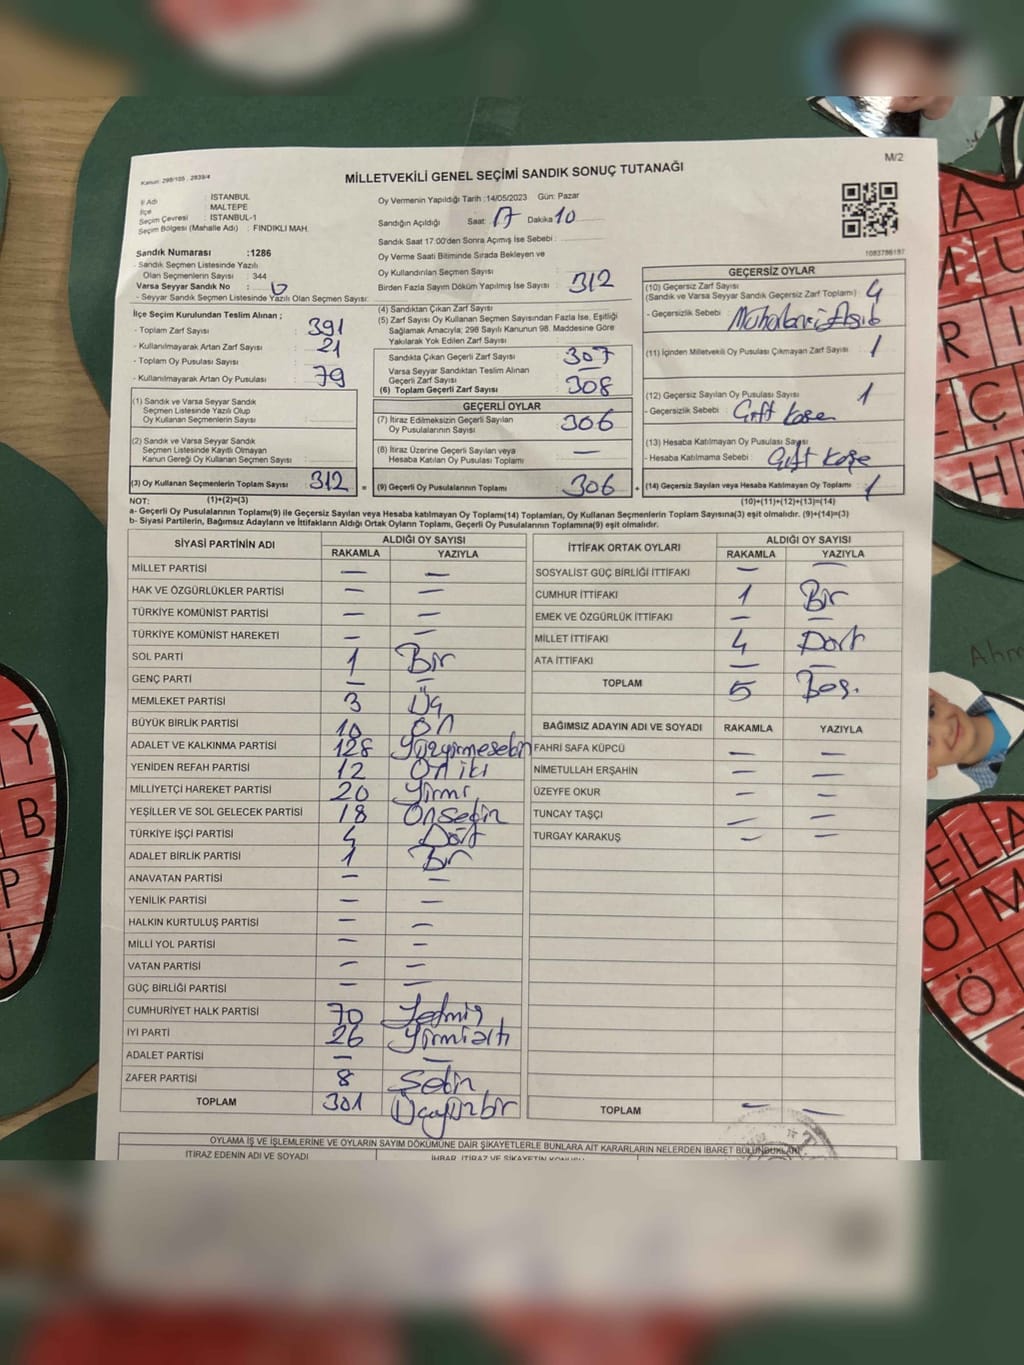 M/2
Kanun: 298/105 , 2839/4
MİLLETVEKİLİ GENEL SEÇİMİ SANDIK SONUÇ TUTANAĞI
İl Adı : İSTANBUL
İlçe : MALTEPE
Seçim Çevresi : İSTANBUL-1
Seçim Bölgesi (Mahalle Adı) : FINDIKLI MAH.
Oy Vermenin Yapıldığı Tarih :14/05/2023 Gün: Pazar
Sandığın Açıldığı Saat: 17 Dakika 10
Sandık Saat 17.00'den Sonra Açımış İse Sebebi :
Oy Verme Saati Bitiminde Sırada Bekleyen ve
Oy Kullandırılan Seçmen Sayısı
Birden Fazla Sayım Döküm Yapılmış İse Sayısı : 312
1083786197
Sandık Numarası :1286
- Sandık Seçmen Listesinde Yazılı
Olan Seçmenlerin Sayısı : 344
Varsa Seyyar Sandık No :
- Seyyar Sandık Seçmen Listesinde Yazılı Olan Seçmen Sayısı:
İlçe Seçim Kurulundan Teslim Alınan ;
- Toplam Zarf Sayısı : 391
- Kullanılmayarak Artan Zarf Sayısı : 21
- Toplam Oy Pusulası Sayısı
- Kullanılmayarak Artan Oy Pusulası : 79
(1) Sandık ve Varsa Seyyar Sandık
Seçmen Listesinde Yazılı Olup
Oy Kullanan Seçmenlerin Sayısı :
(2) Sandık ve Varsa Seyyar Sandık
Seçmen Listesinde Kayıtlı Olmayan
Kanun Gereği Oy Kullanan Seçmen Sayısı :
(3) Oy Kullanan Seçmenlerin Toplam Sayısı : 312
(4) Sandıktan Çıkan Zarf Sayısı :
(5) Zarf Sayısı Oy Kullanan Seçmen Sayısından Fazla İse, Eşitliği
Sağlamak Amacıyla; 298 Sayılı Kanunun 98. Maddesine Göre
Yakılarak Yok Edilen Zarf Sayısı :
Sandıkta Çıkan Geçerli Zarf Sayısı : 307
Varsa Seyyar Sandıktan Teslim Alınan
Geçerli Zarf Sayısı
(6) Toplam Geçerli Zarf Sayısı : 308
GEÇERLİ OYLAR
(7) İtiraz Edilmeksizin Geçerli Sayılan
Oy Pusulalarının Sayısı : 306
(8) İtiraz Üzerine Geçerli Sayılan veya
Hesaba Katılan Oy Pusulaları Toplamı : —
= (9) Geçerli Oy Pusulalarının Toplamı : 306
GEÇERSİZ OYLAR
(10) Geçersiz Zarf Sayısı
(Sandık ve Varsa Seyyar Sandık Geçersiz Zarf Toplamı) : 4
- Geçersizlik Sebebi :
(11) İçinden Milletvekili Oy Pusulası Çıkmayan Zarf Sayısı : 1
(12) Geçersiz Sayılan Oy Pusulası Sayısı : 1
- Geçersizlik Sebebi : Çift Kaşe
(13) Hesaba Katılmayan Oy Pusulası Sayısı
- Hesaba Katılmama Sebebi : Çift Kaşe
+ (14) Geçersiz Sayılan veya Hesaba Katılmayan Oy Toplamı : 1
NOT: (1)+(2)=(3) (10)+(11)+(12)+(13)=(14)
a- Geçerli Oy Pusulalarının Toplamı(9) ile Geçersiz Sayılan veya Hesaba katılmayan Oy Toplamı(14) Toplamları, Oy Kullanan Seçmenlerin Toplam Sayısına(3) eşit olmalıdır. (9)+(14)=(3)
b- Siyasi Partilerin, Bağımsız Adayların ve İttifakların Aldığı Ortak Oyların Toplamı, Geçerli Oy Pusulalarının Toplamına(9) eşit olmalıdır.
SİYASİ PARTİNİN ADI ALDIĞI OY SAYISI
RAKAMLA YAZIYLA
MİLLET PARTİSİ — —
HAK VE ÖZGÜRLÜKLER PARTİSİ — —
TÜRKİYE KOMÜNİST PARTİSİ — —
TÜRKİYE KOMÜNİST HAREKETİ — —
SOL PARTİ 1 Bir
GENÇ PARTİ — —
MEMLEKET PARTİSİ 3 Üç
BÜYÜK BİRLİK PARTİSİ 10 On
ADALET VE KALKINMA PARTİSİ 128 Yüzyirmesekin
YENİDEN REFAH PARTİSİ 12 On iki
MİLLİYETÇİ HAREKET PARTİSİ 20 Yirmi
YEŞİLLER VE SOL GELECEK PARTİSİ 18 Onsekin
TÜRKİYE İŞÇİ PARTİSİ 4 Dört
ADALET BİRLİK PARTİSİ 1 Bir
ANAVATAN PARTİSİ — —
YENİLİK PARTİSİ — —
HALKIN KURTULUŞ PARTİSİ — —
MİLLİ YOL PARTİSİ — —
VATAN PARTİSİ — —
GÜÇ BİRLİĞİ PARTİSİ — —
CUMHURİYET HALK PARTİSİ 70 Yetmiş
İYİ PARTİ 26 Yirmialtı
ADALET PARTİSİ — —
ZAFER PARTİSİ 8 Sekin
TOPLAM 301 Üçyüzbir
İTTİFAK ORTAK OYLARI ALDIĞI OY SAYISI
RAKAMLA YAZIYLA
SOSYALİST GÜÇ BİRLİĞİ İTTİFAKI — —
CUMHUR İTTİFAKI 1 Bir
EMEK VE ÖZGÜRLÜK İTTİFAKI — —
MİLLET İTTİFAKI 4 Dört
ATA İTTİFAKI — —
TOPLAM 5 Beş.
BAĞIMSIZ ADAYIN ADI VE SOYADI RAKAMLA YAZIYLA
FAHRİ SAFA KÜPCÜ — —
NİMETULLAH ERŞAHİN — —
ÜZEYFE OKUR — —
TUNCAY TAŞÇI — —
TURGAY KARAKUŞ — —
TOPLAM — —
OYLAMA İŞ VE İŞLEMLERİNE VE OYLARIN SAYIM DÖKÜMÜNE DAİR ŞİKAYETLERLE BUNLARA AİT KARARLARIN NELERDEN İBARET BULUNDUKLARI
İTİRAZ EDENİN ADI VE SOYADI
İHBAR, İTİRAZ VE ŞİKAYETİN KONUSU
Y
B
P
Ü
A
U
R
İ
Ç
H
Ahm
E L A
O M
Ö